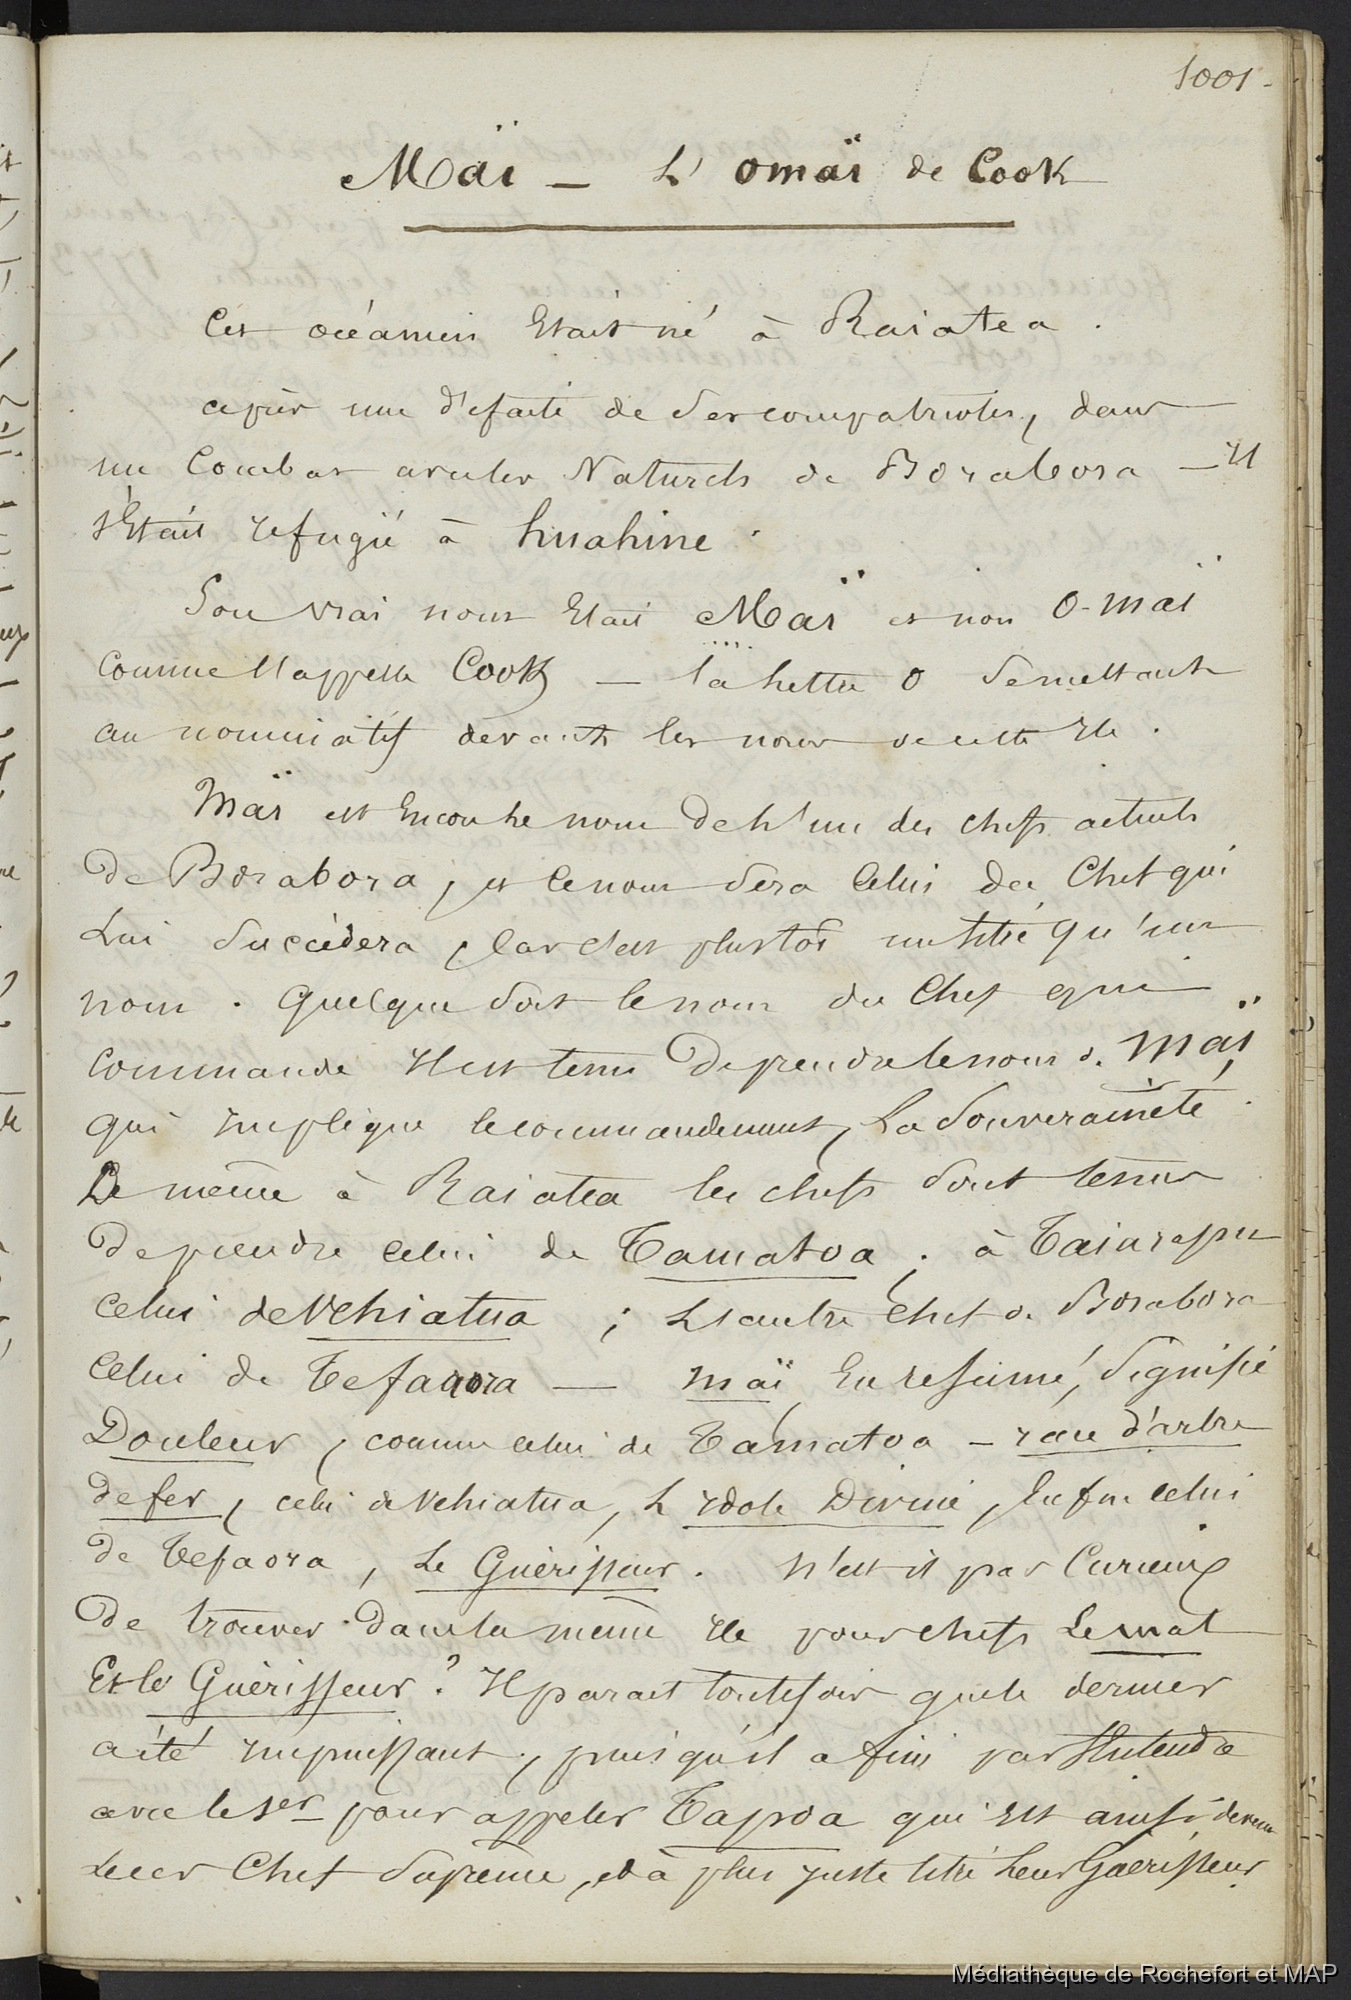 1001.
Maï — L'omaï de Cook
Cet océanien Etait né à Raiatea.
après une d'efaite de ses compatriotes, dans
un Combat avec les Naturels de Borabora — il
s'Etait refugié à huahine.
Son vrai nom Etait Maï et non O-maï
comme l'appelle Cook — la lettre O se mettant
au nominatif devant les noms de cette Ile.
Maï est Encore le nom de l'un des chefs actuels
de Borabora, et ce nom sera Celui du Chef qui
Lui succèdera, Car c'est plustôt un titre qu'un
nom. Quelque soit le nom du Chef qui
commande Il est tenu de prendre le nom de Maï,
qui implique le commandement, La Souveraineté.
De même à Raiatea les chefs sont tenus
de prendre celui de Tamatoa; à Taiarapu
celui de Vehiatua; L'autre Chef de Borabora
celui de Tefaaora — maï, En resumé, signifie
Douleur, comme celui de Tamatoa — race d'arbre
de fer, celui de Vehiatua, L'idole Divine, Enfin Celui
de Tefaora, Le Guérisseur. N'est il pas Curieux
De trouver Dans la même Ile pour chefs Le mal
Et le Guérisseur? Il parait toutefois que le dernier
a été impuissant, puisqu'il a fini par s'Entendre
avec le 1er pour appeler Tapoa qui Est ainsi devenu
Leur Chef Suprême, et à plus juste titre Leur Guérisseur.
Médiathèque de Rochefort et MAP